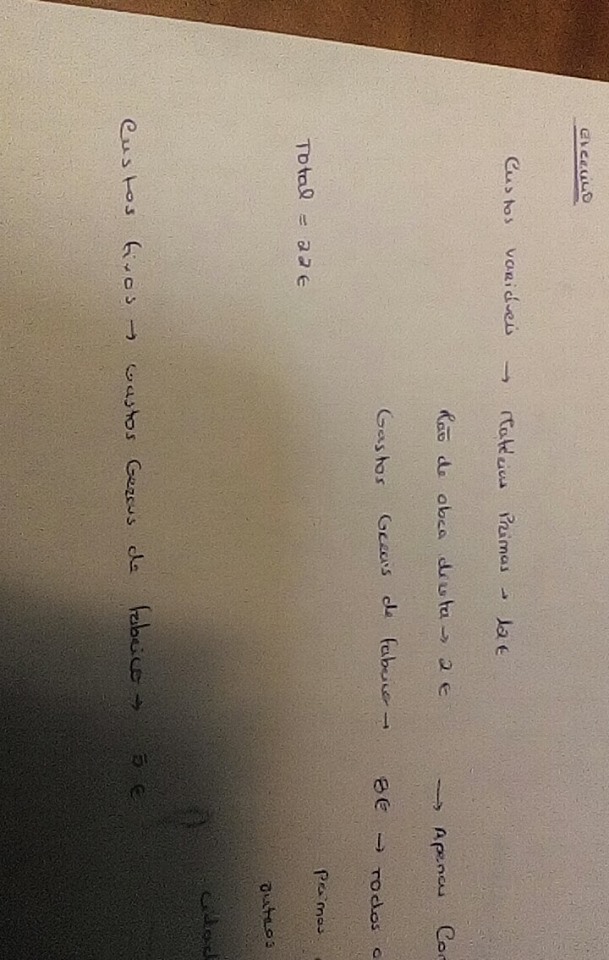 Exercício
Custos variáveis → Matérias Primas → 12€
Mão de obra direta → 2 € → Apenas Con
Gastos Gerais de fabrico → 8€ → Todos o
Primas
Total = 22€
outros
cidad
Custos fixos → Gastos Gerais de fabrico → 5 €